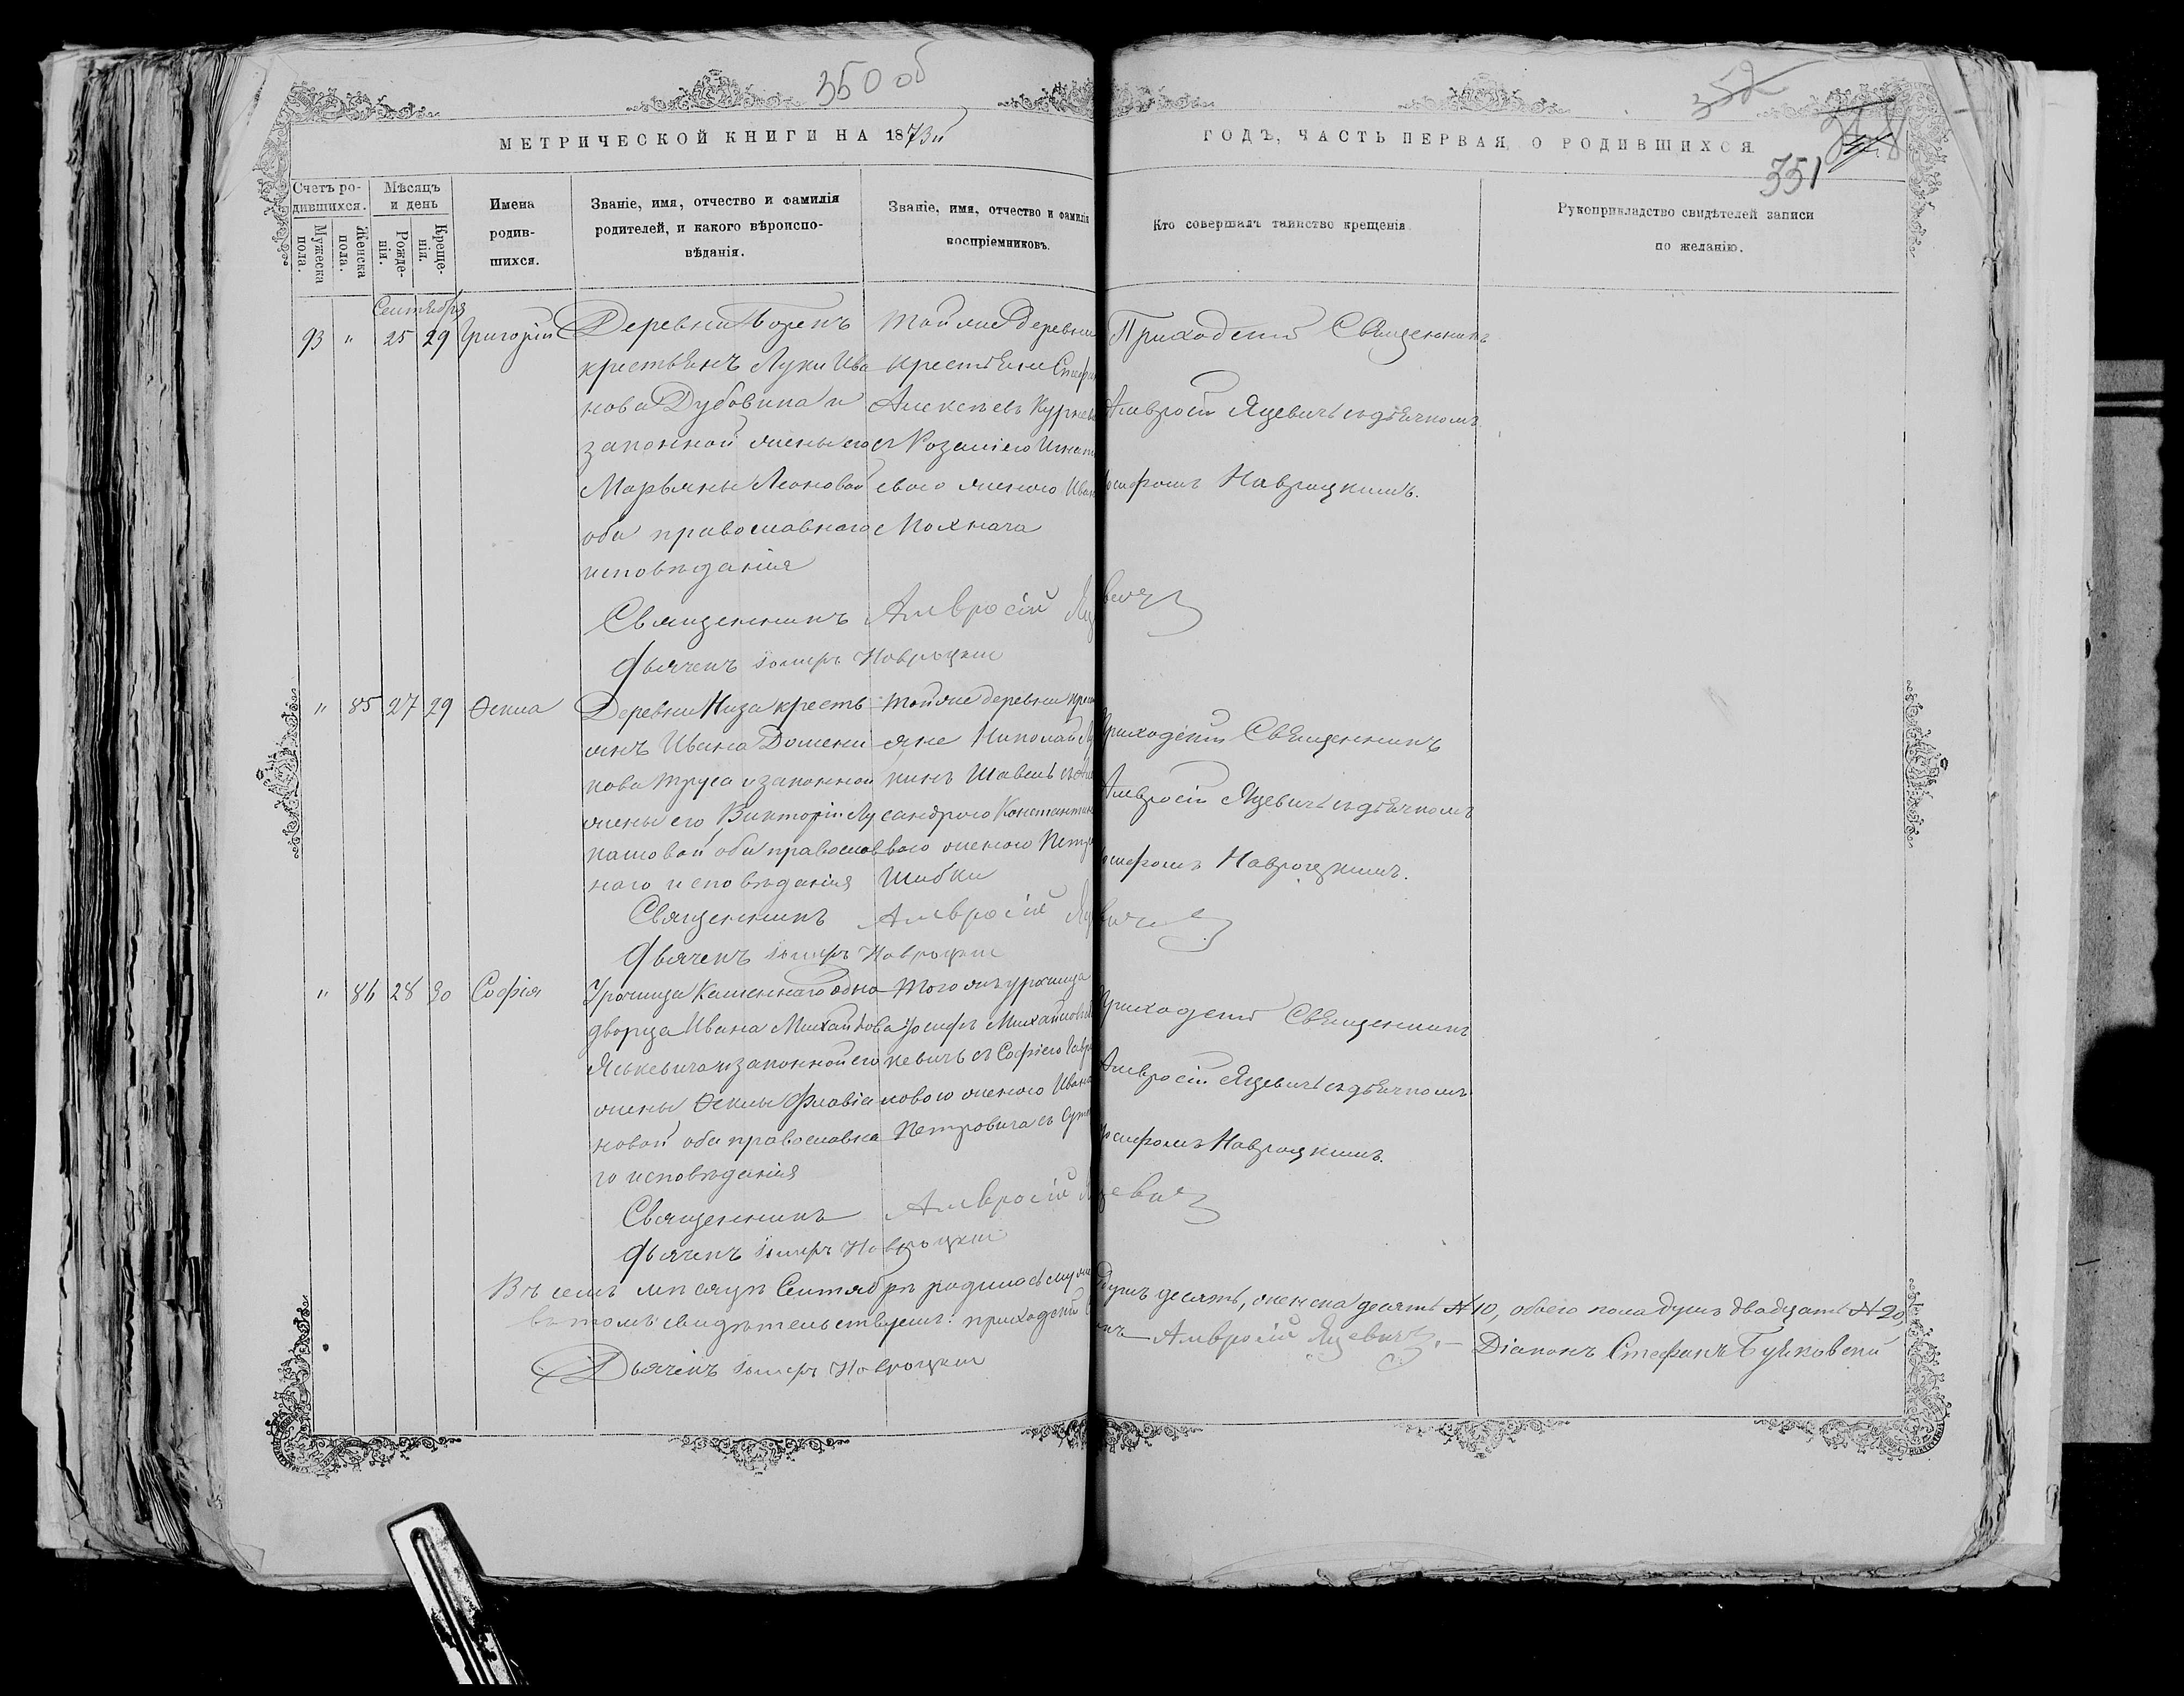 350 об
352
351
МЕТРИЧЕСКОЙ КНИГИ НА 1873й
ГОДЪ, ЧАСТЬ ПЕРВАЯ, О РОДИВШИХСЯ.
Счетъ ро-
дившихся.
Мужеска пола.
Женска пола.
Мѣсяцъ
и день
Рожде-
нія.
Креще-
нія.
Имена
родив-
шихся.
Званіе, имя, отчество и фамилія
родителей, и какого вѣроиспо-
вѣданія.
Званіе, имя, отчество и фамилія
воспріемниковъ.
Кто совершалъ таинство крещенія
Рукоприкладство свидѣтелей записи
по желанію.
Сентября
93 " 25 29 Григорій
Деревни
крестьянъ Луки Ива
нова Дубовика и
законной жены его
Марьяны Леоновой
оба православнаго
исповѣданія
той же деревни
крестьяни
Алексѣевъ
съ Розаліею
евою женою Иван
Махнача
Приходскій Священникъ
Амвросій Яцевичъ съ дьячкомъ
осифомъ Наврацкимъ.
Священникъ Амвросій Яцевичъ
Дьячекъ Іосифъ Новроцкій
" 85 27 29 Ѳекла
Деревни Низа кресть
янъ Ивана Домени
кова Труса и законной
жены его Викторіи Лу
кашовой оба православ
наго исповѣданія
той же деревни крест
яне Николай
съ
сандрою Константин
вою женою Петра
Шибки
Приходскій Священникъ
Амвросій Яцевичъ съ дьячкомъ
осифомъ Навроцкимъ.
Священникъ Амвросій Яцевичъ
Дьячекъ Іосифъ Новроцкій
" 86 28 30 Софія
Урочища Каменнаго одно
дворца Ивана Михайлова
Яськевича и законной его
жены Ѳеклы Флавіа
новой оба православна
го исповѣданія
того жъ урочища
Іосифъ Михайловъ
кевичъ съ Софіею Гаври
ловою женою Ивана
Петровича съ
Приходскій Священникъ
Амвросій Яцевичъ съ дьячкомъ
Іосифомъ Наврацкимъ.
Священникъ Амвросій Яцевичъ
Дьячекъ Іосифъ Новроцкій
Въ семъ мѣсяцѣ Сентябрѣ родилось муже душъ десять, женска десять № 10, обоего пола душъ двадцать № 20,
въ томъ свидѣтельствуемъ: приходскій Амвросій Яцевичъ. — Діаконъ Стефанъ
Дьячекъ Іосифъ Новроцкій